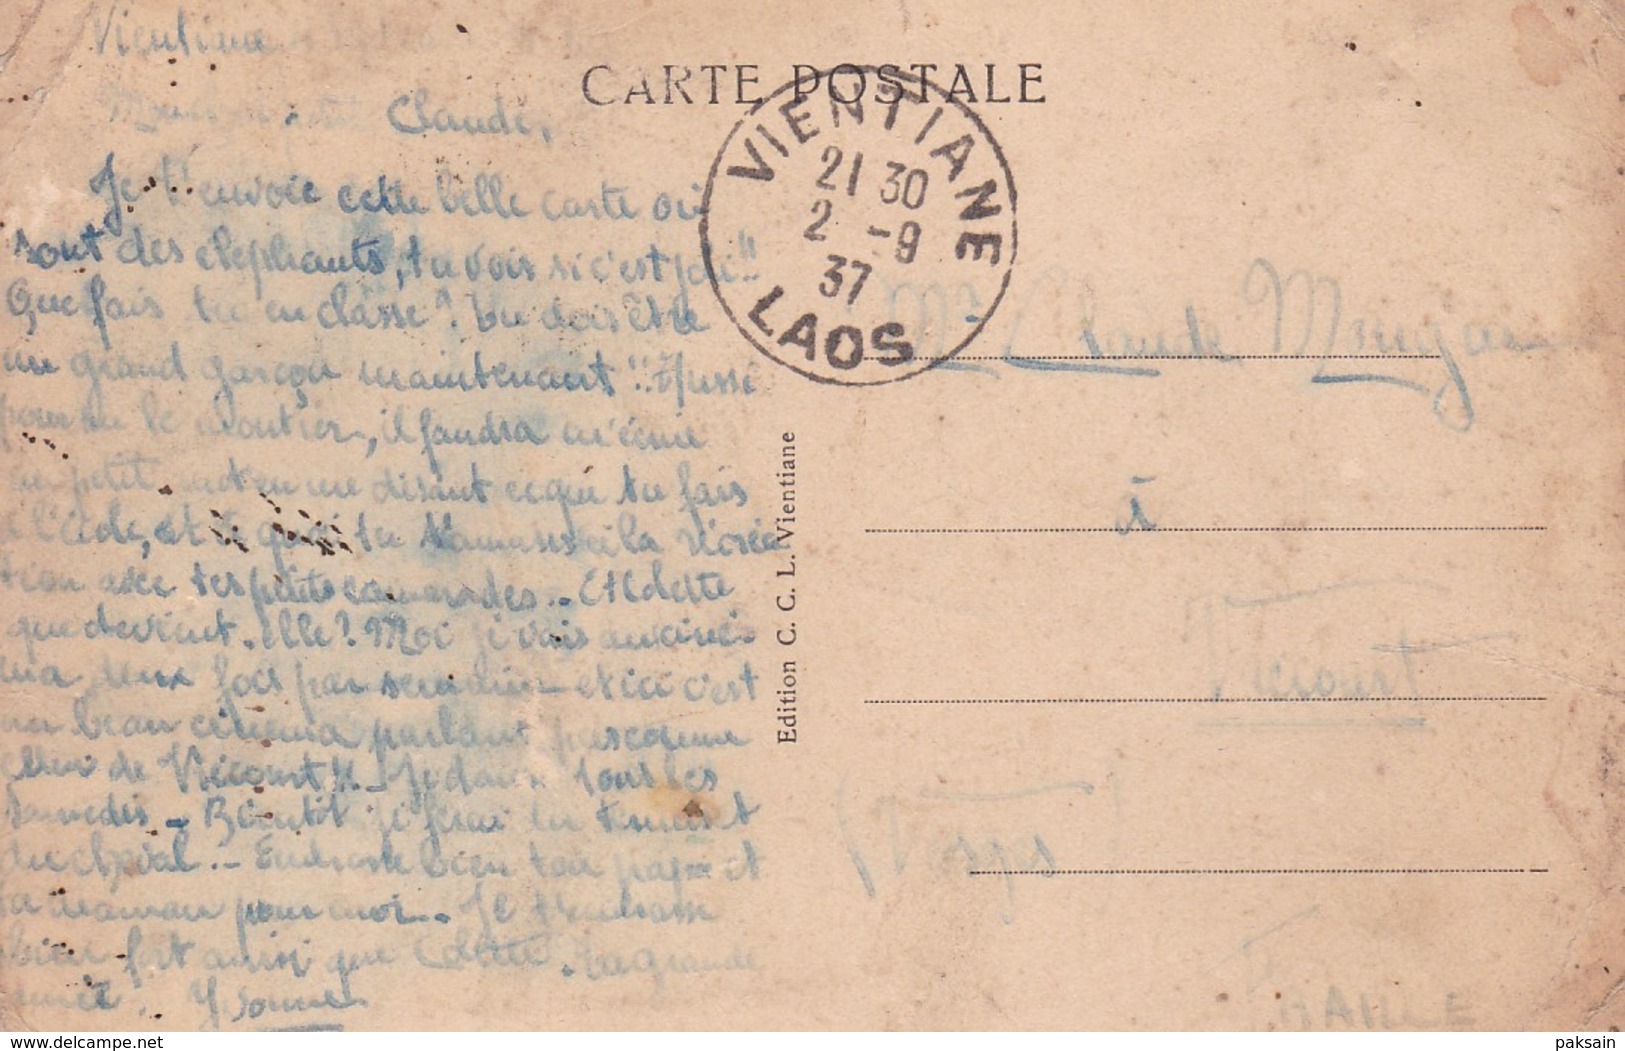 Vientiane
CARTE POSTALE
Claude,
Je t'envoie cette belle carte où
sont des elephants, tu vois si c'est joli!!
Que fais tu en classe? Tu dois être
un grand garçon maintenant!! Aussi
pour me le montrer, il faudra m'écrire
un petit mot en me disant ce que tu fais
à l'école, et à quoi tu t'amuses à la récréa
tion avec tes petits camarades.. Et Colette
que devient-elle? Moi je vais au ciné-
ma deux fois par semaine et ici c'est
un beau cinema parlant, pas comme
celui de Vicourt!! Je danse tous les
samedis - Bientôt je ferai
du cheval.- Embrasse bien ton papa et
ta maman pour moi.. Je t'embrasse
bien fort ainsi que Colette. Ta grande
amie. Yvonne
VIENTIANE
21 30
2 -9
37
LAOS
Mr Claude
à
(Vosges)
Edition C. C. L. Vientiane
delcampe.net
paksain